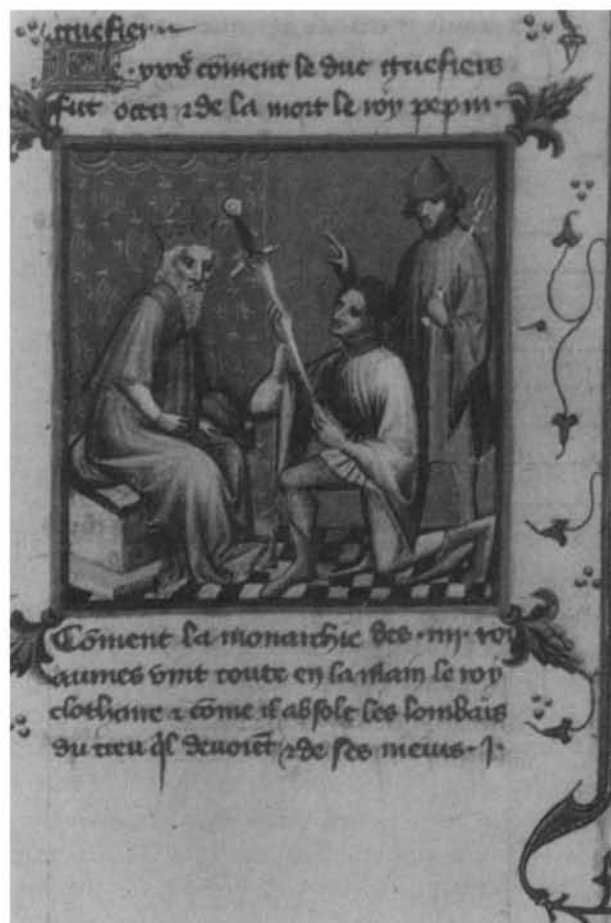 coment le duc
fut & de la mort le roy pepin.
Coment la monarchie des .iiij. roi
aumes vint toute en la main le roy
clothaire & come il absolt les lombars
du treu ql devoiet & de ses meurs. J.